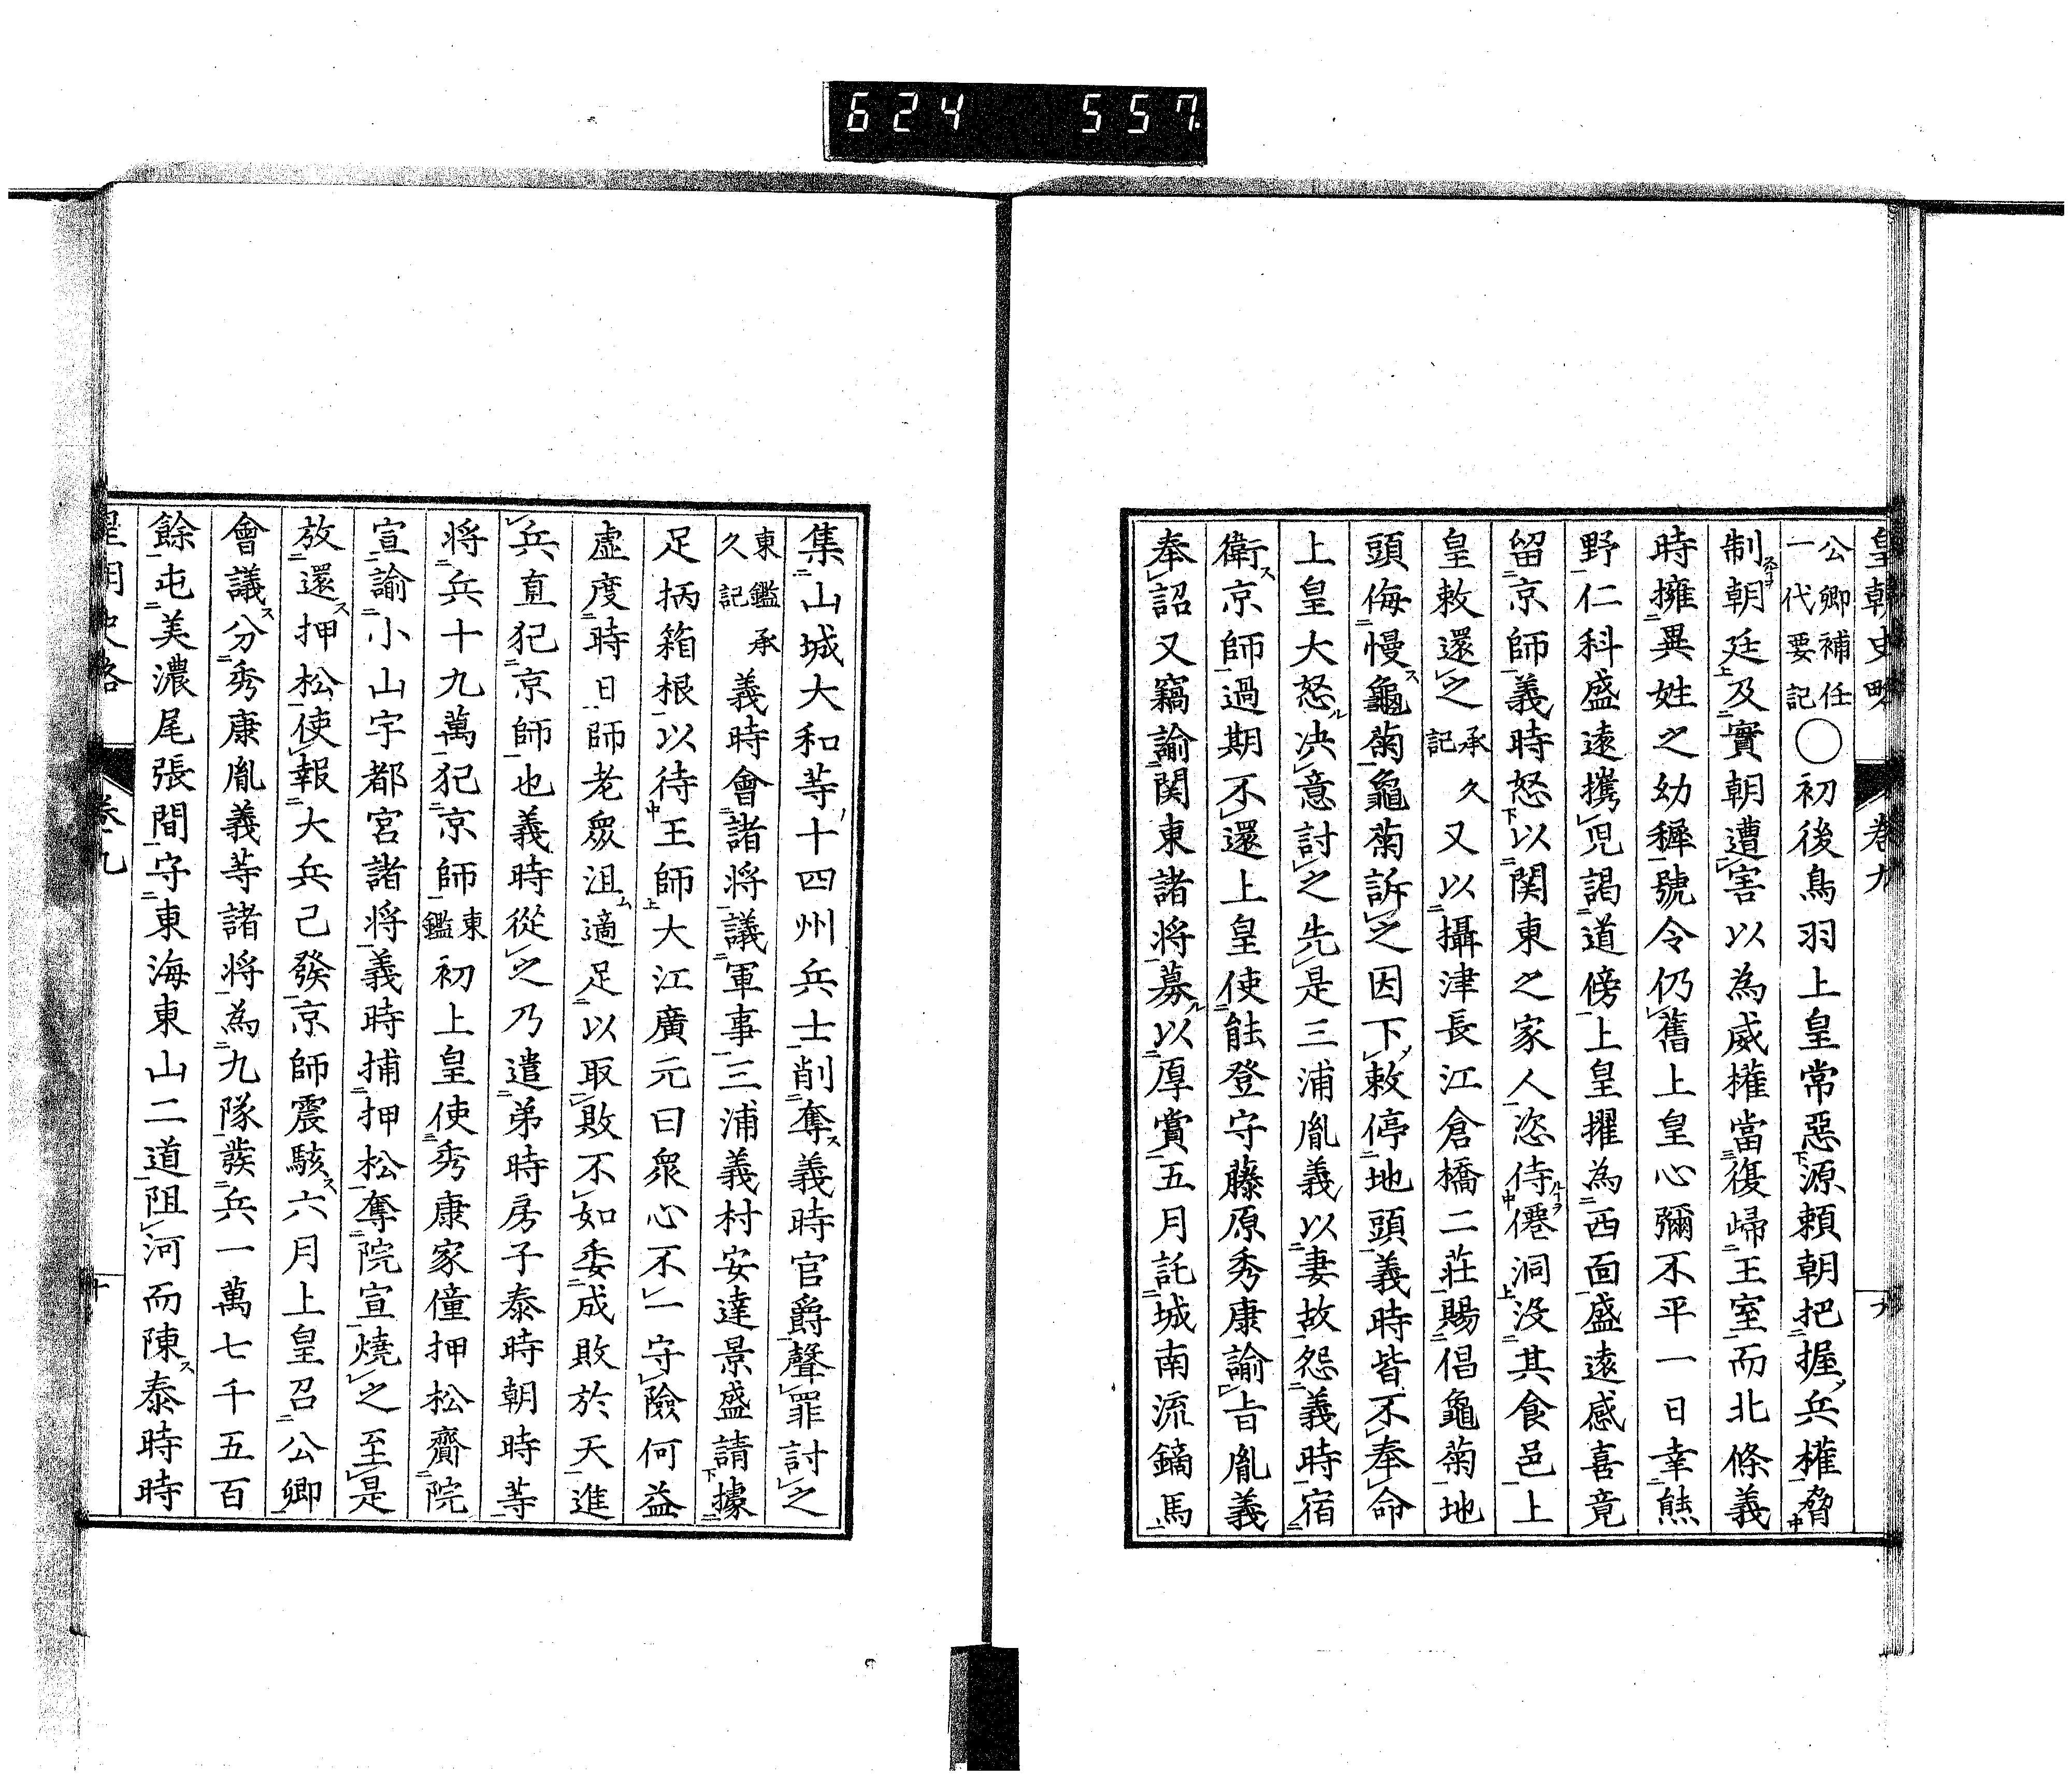 624 557
皇朝史略 卷九 九
公卿補任一代要記○初後鳥羽上皇常惡源賴朝把握兵權脅
制朝廷及實朝遭害以為威權當復歸王室而北條義
時擁異姓之幼穉號令仍舊上皇心彌不平一日幸熊
野仁科盛遠攜兒謁道傍上皇擢為西面盛遠感喜竟
留京師義時怒以関東之家人恣侍僊洞沒其食邑上
皇敕還之承久記又以攝津長江倉橋二莊賜倡龜菊地
頭侮慢龜菊龜菊訴之因下敕停地頭義時皆不奉命
上皇大怒决意討之先是三浦胤義以妻故怨義時宿
衛京師過期不還上皇使能登守藤原秀康諭旨胤義
奉詔又竊諭関東諸將募以厚賞五月託城南流鏑馬
集山城大和等十四州兵士削奪義時官爵聲罪討之
東鑑承久記義時會諸將議軍事三浦義村安達景盛請據
足柄箱根以待王師大江廣元曰衆心不一守險何益
虛度時日師老衆沮適足以取敗不如委成敗於天進
兵直犯京師也義時從之乃遣弟時房子泰時朝時等
將兵十九萬犯京師東鑑初上皇使秀康家僮押松齎院
宣諭小山宇都宮諸將義時捕押松奪院宣燒之至是
放還押松使報大兵已發京師震駭六月上皇召公卿
會議分秀康胤義等諸將為九隊發兵一萬七千五百
餘屯美濃尾張間守東海東山二道阻河而陳泰時時
皇朝史略 卷九 十